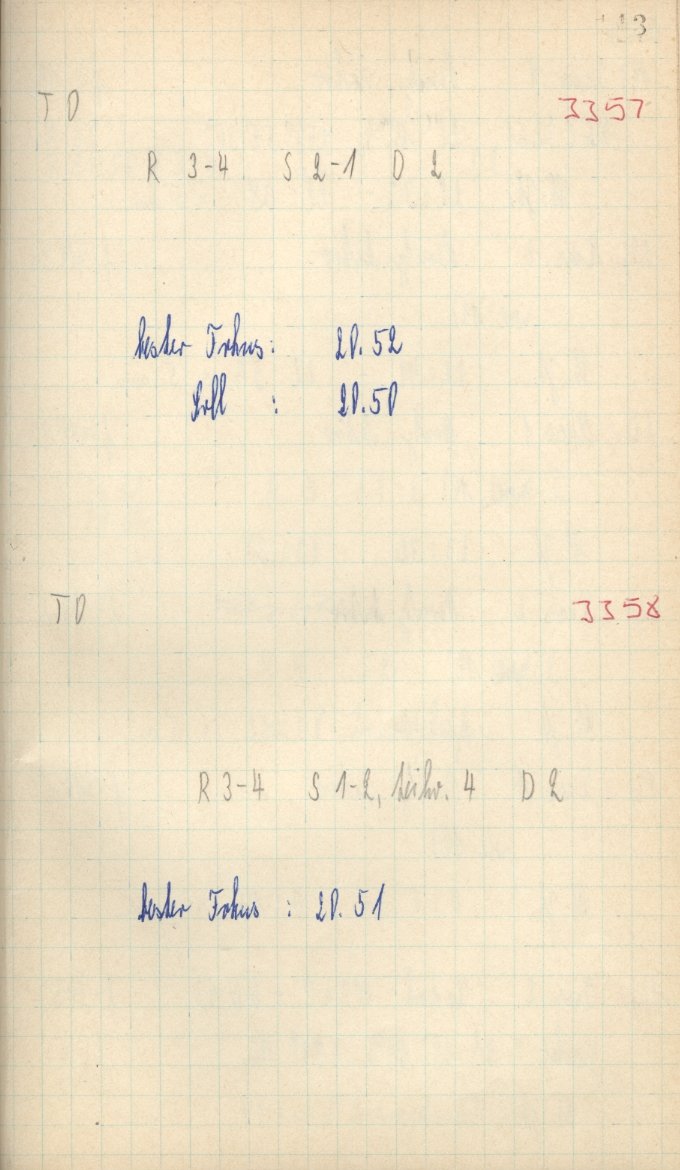 TD 3357
R 3-4 S 2-1 D 2
bester Fokus: 20.52
Soll : 20.50
TD 3358
R 3-4 S 1-2, teilw. 4 D 2
bester Fokus : 20.51